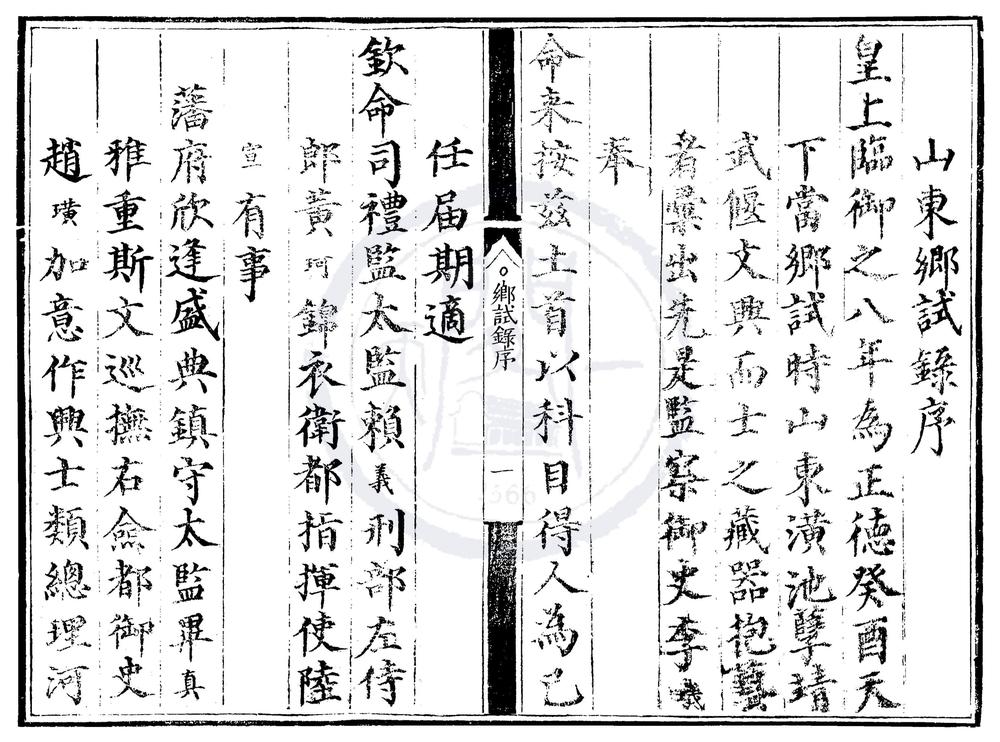 山東鄉試錄序
皇上臨御之八年為正德癸酉天
下當鄉試時山東潢池孽靖
武偃文興而士之藏器抱藝
者彙出先是監察御史李曦
奉
命來按茲土首以科目得人為已
鄉試錄序
一
任屆期適
欽命司禮監太監賴義刑部左侍
郎黃珂錦衣衛都指揮使陸
宣有事
藩府欣逢盛典鎮守太監畢真
雅重斯文巡撫右僉都御史
趙璜加意作興士類總理河